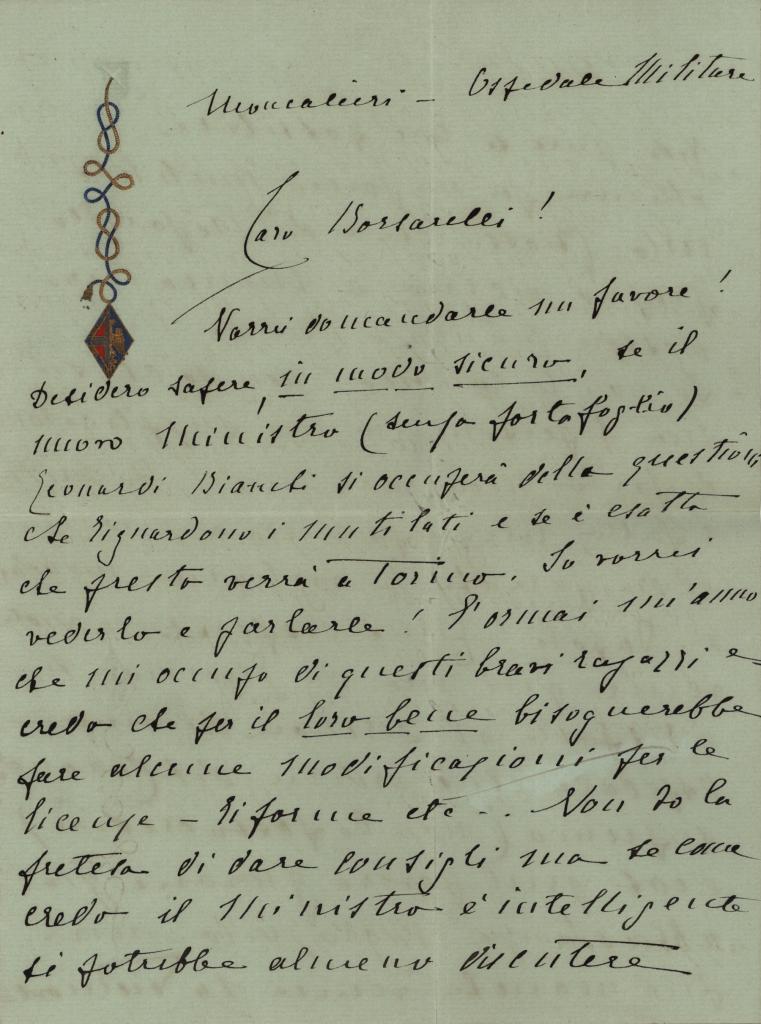 Moncalieri - Ospedale Militare
Caro Borsarelli!
Vorrei domandarle un favore!
Desidero sapere, in modo sicuro, se il
nuovo Ministro (senza portafoglio)
Leonardi Bianchi si occuperà della questioni
che riguardono i mutilati e se è esatto
che presto verrà a Torino. Io vorrei
vederlo e parlarle! È ormai un'anno
che mi occupo di questi bravi ragazzi e
credo che per il loro bene bisognerebbe
fare alcune modificazioni per le
licenze - riforme etc.. Non ho la
pretesa di dare consigli ma se come
credo il Ministro è intelligente
si potrebbe almeno discutere